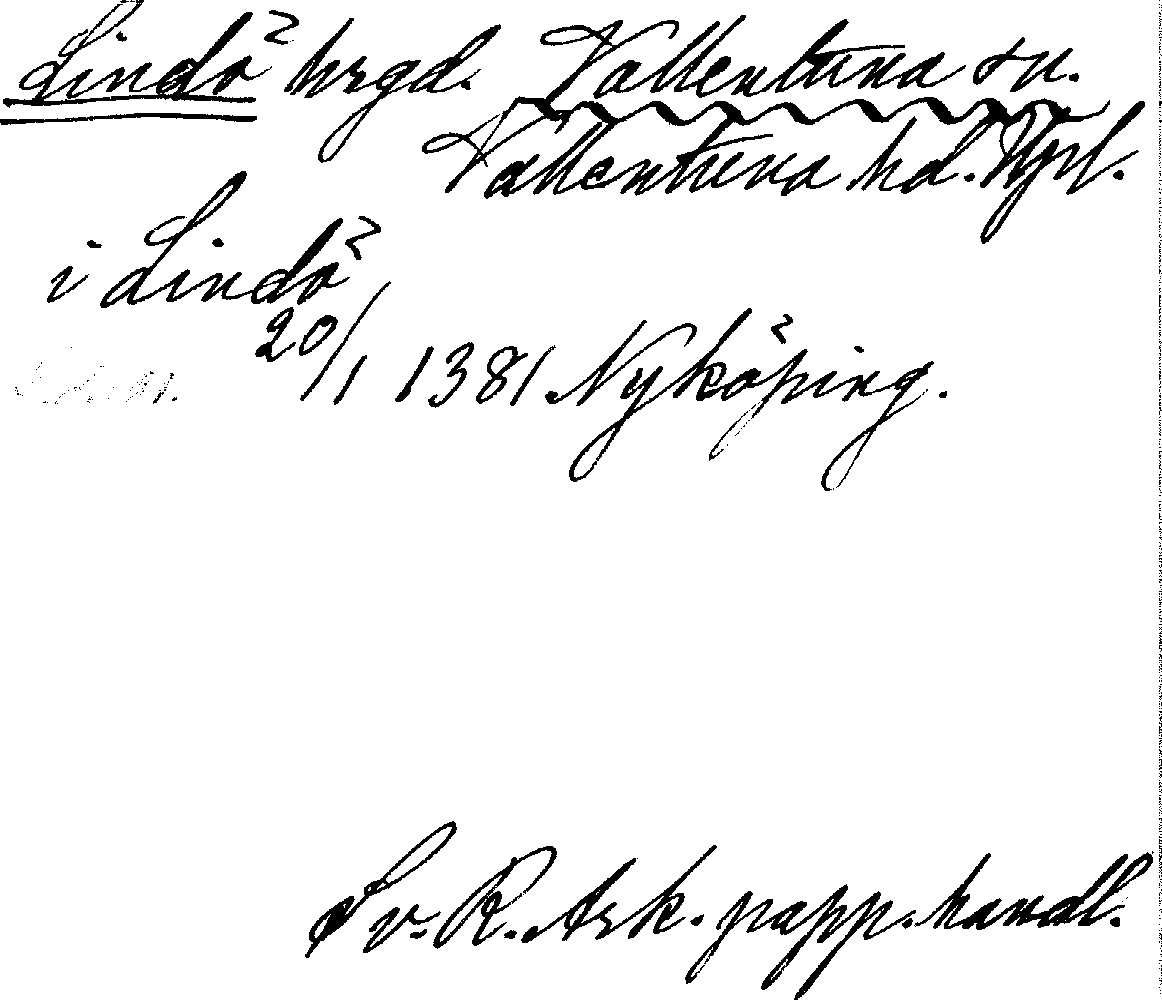 Lindö hrgd. Vallentuna sn.
Vallentuna hd. Upl.
i Lindö
20/1 1381 Nyköping.
Sv. R. Ark. papp. handl.